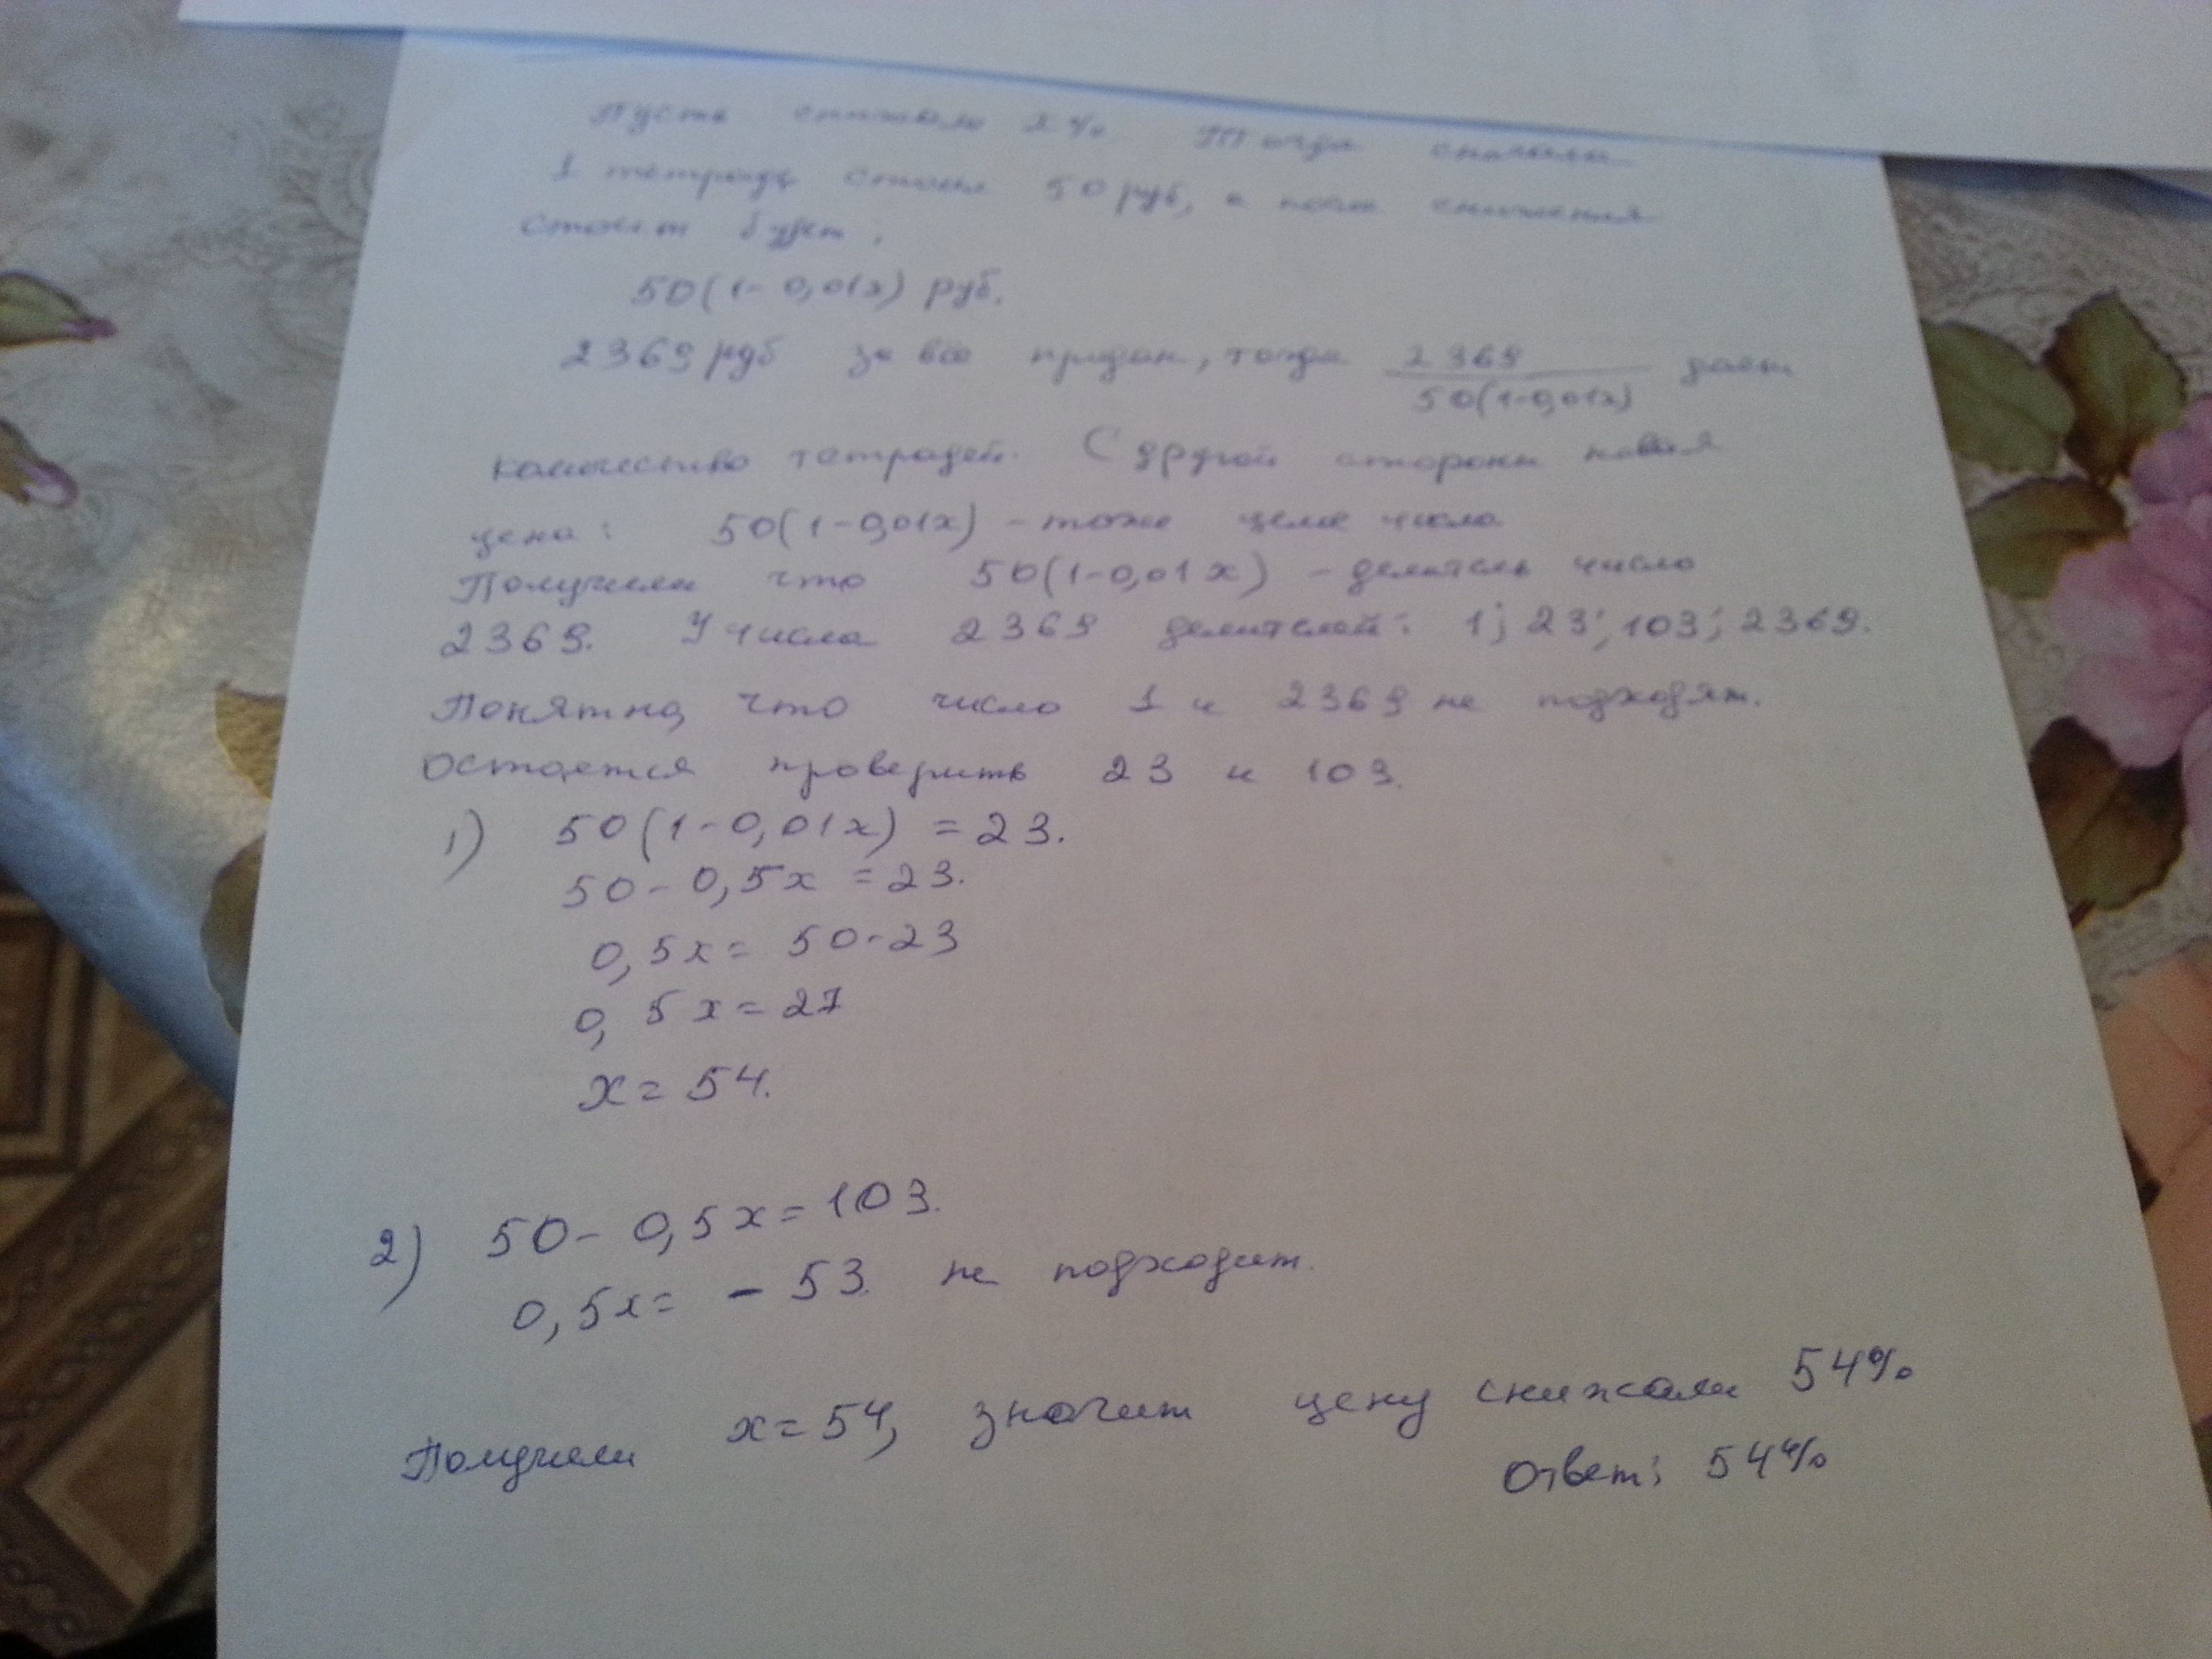 Пусть снижали x%. Тогда сначала
1 тетрадь стоила 50 руб, а после снижения
стоить будет:
50(1-0,01x) руб.
2369 руб за все продан, тогда 2369/50(1-0,01x) дает
количество тетрадей. С другой стороны новая
цена: 50(1-0,01x) - тоже целое число
Получили что 50(1-0,01x) - делитель число
2369. У числа 2369 делителей: 1; 23; 103; 2369.
Понятно, что число 1 и 2369 не подходят.
Остается проверить 23 и 103.
1) 50(1-0,01x) = 23.
50-0,5x = 23.
0,5x = 50-23
0,5x = 27
x = 54.
2) 50-0,5x = 103.
0,5x = -53. не подходит.
Получили x = 54, значит цену снижали 54%
Ответ: 54%